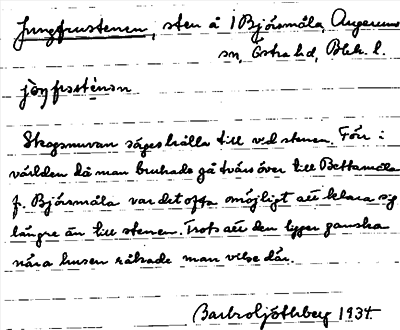 Jungfrustenen, sten å 1 Björsmåla, Augerums
sn, Östra hd, Blek. l.
Skogsnuvan säges hålla till vid stenen. Förr i
världen då man brukade gå tvärs över till Bettamåla
f. Björsmåla var det ofta omöjligt att klara sig
längre än till stenen. Trots att den ligger ganska
nära husen råkade man vilse där.
1934.